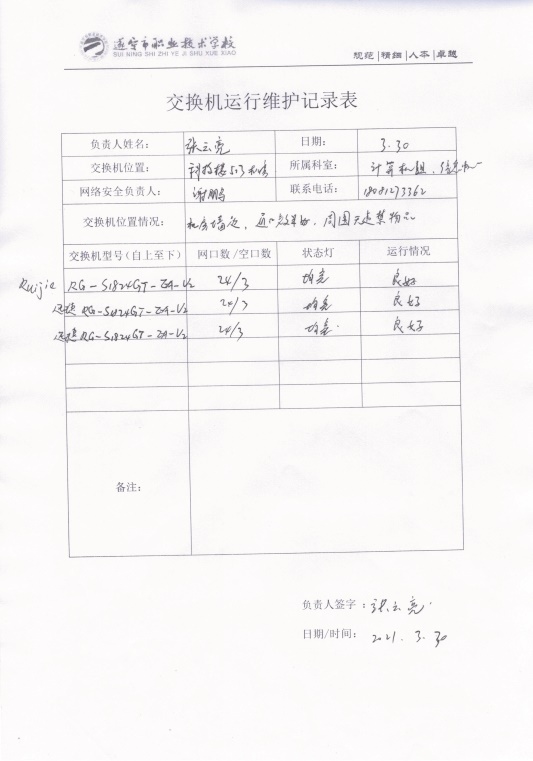 遂宁市职业技术学校
SUI NING SHI ZHI YE JI SHU XUE XIAO
规范|精细|人本|卓越
交换机运行维护记录表
负责人姓名: 张云亮 日期: 3.30
交换机位置: 科技楼513机房 所属科室: 计算机组、信息办
网络安全负责人: 谢鹏 联系电话: 18081273362
交换机位置情况: 机房墙边, 周围无违禁物品
交换机型号(自上至下) 网口数/空口数 状态灯 运行情况
Ruijie RG-S1824GT-EA-V2 24/3 均亮 良好
RG-S1824GT-EA-V2 24/3 均亮 良好
RG-S1824GT-EA-V2 24/3 均亮 良好
备注:
负责人签字: 张云亮
日期/时间: 2021.3.30